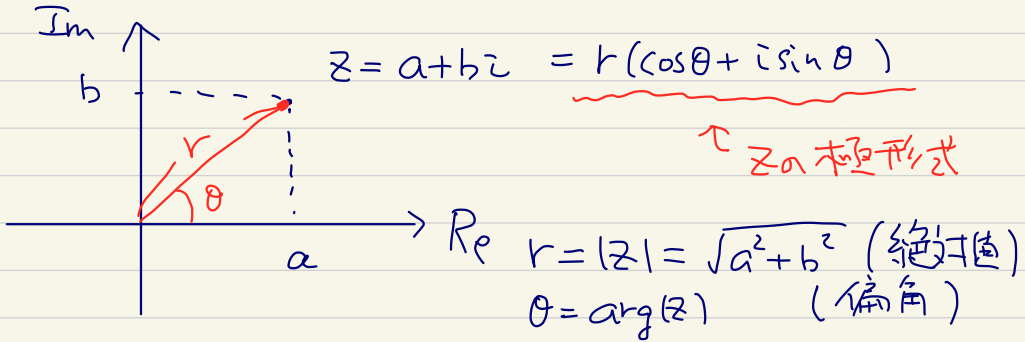 Im
b
r
θ
a
Re
z = a+bi = r(cosθ + i sinθ)
↑ zの極形式
r = |z| = √(a²+b²) (絶対値)
θ = arg(z) (偏角)